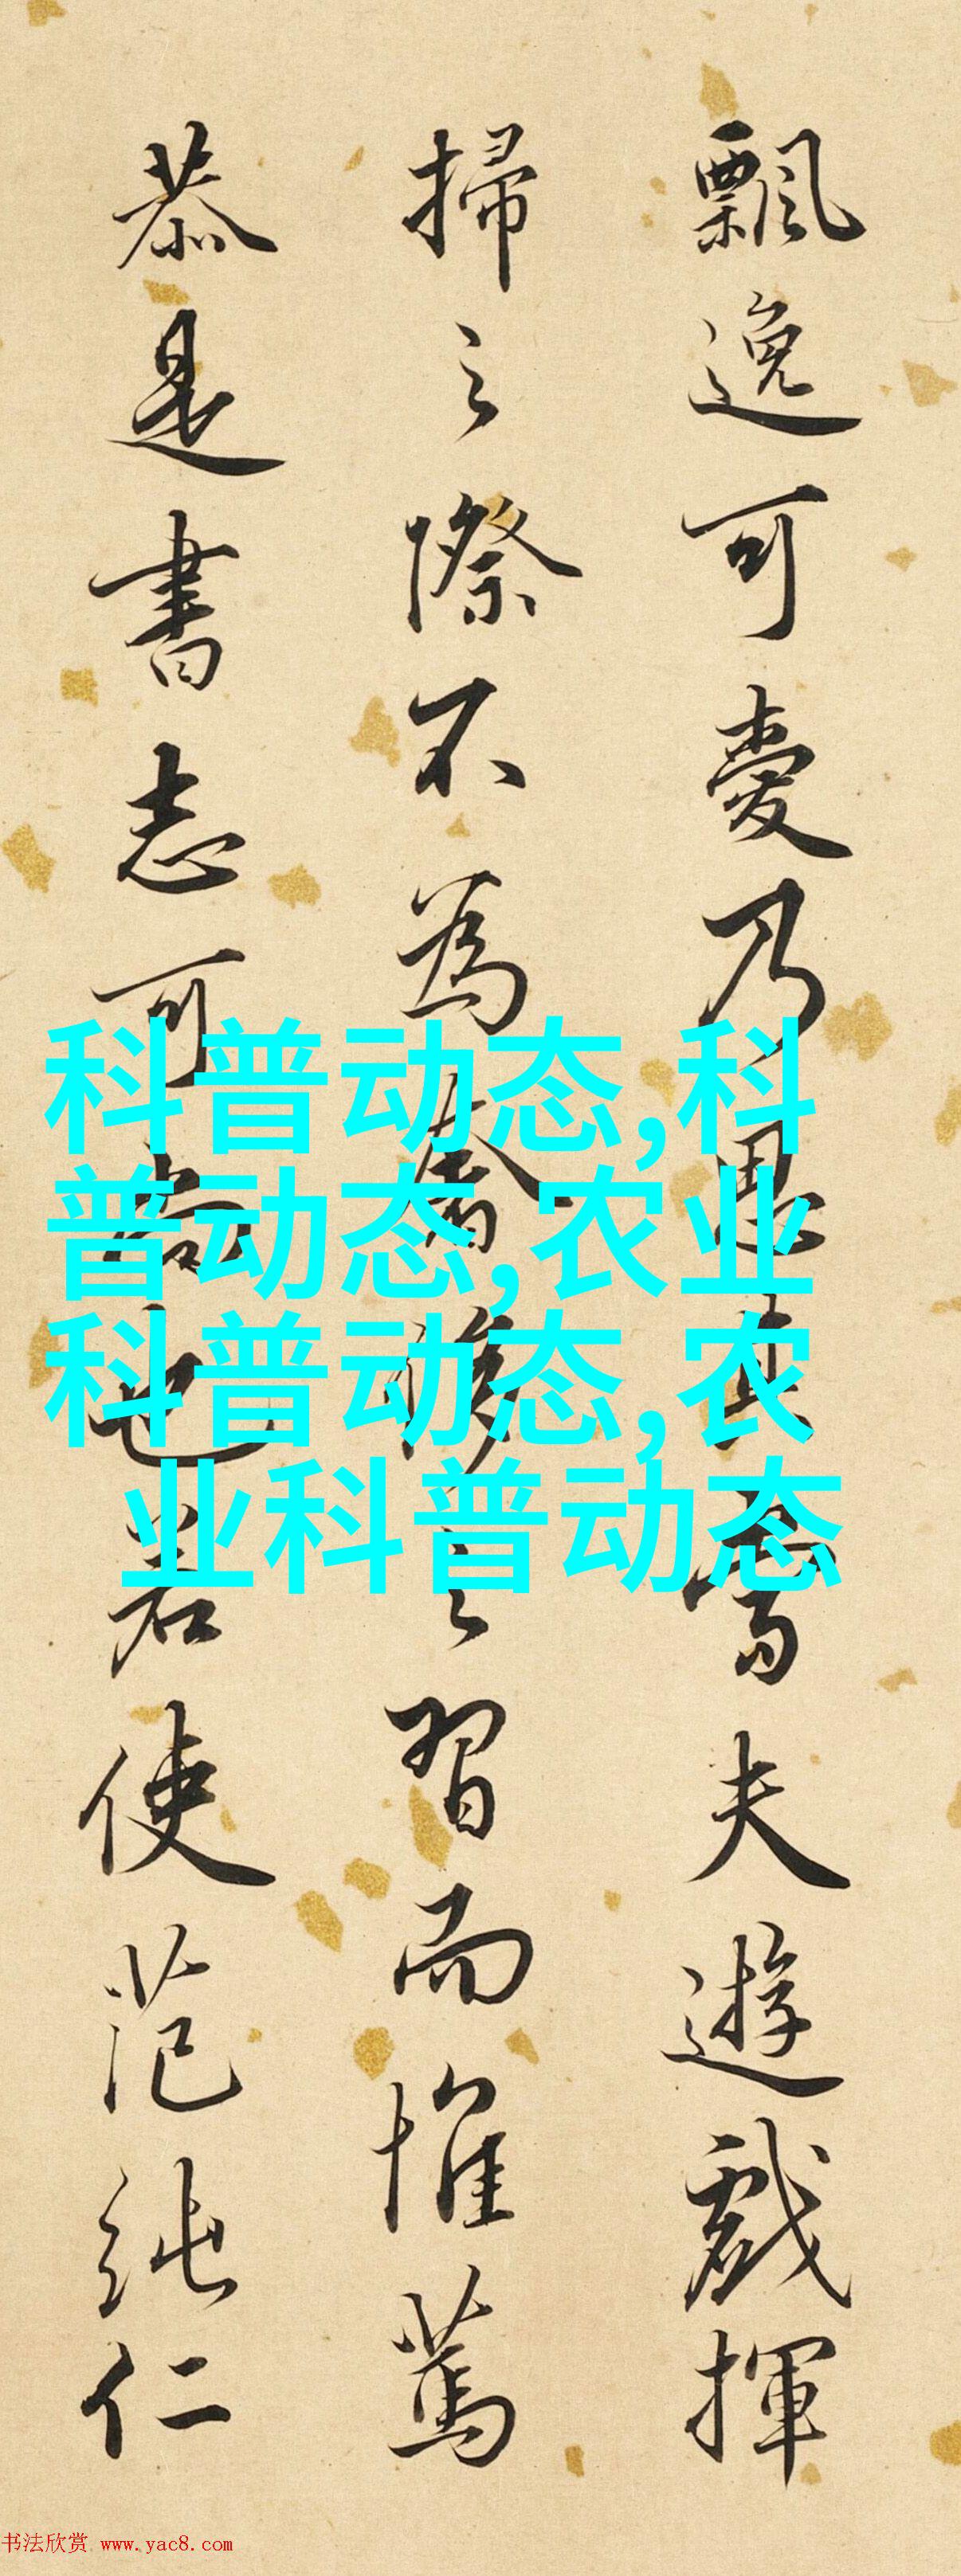 飄逸可愛乃愚其寫夫遊戲揮
掃之際不為奢後之習而惟篤
恭是書志可尚也若使范純仁
科普动态,科
普动态,农业
科普动态,农
业科普动态
书法欣赏 www.yac8.com